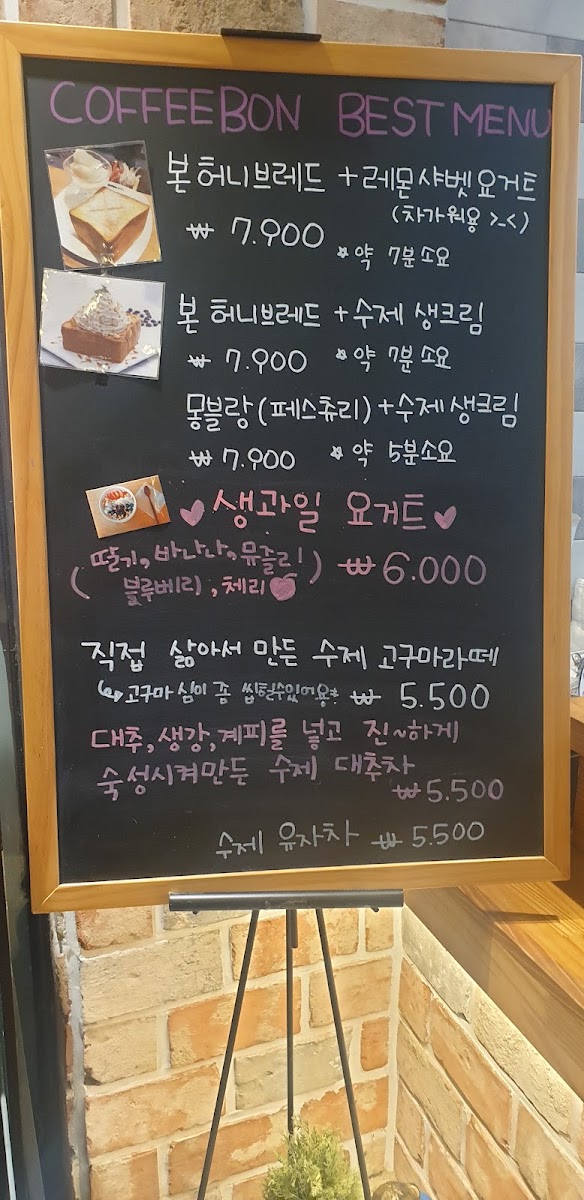 COFFEEBON BEST MENU
본 허니브레드 + 레몬샤벳요거트
(차가워용 >_<)
₩ 7.900 *약 7분소요
본 허니브레드 + 수제 생크림
₩ 7.900 *약 7분소요
몽블랑(페스츄리)+수제생크림
₩ 7.900 *약 5분소요
♥ 생과일 요거트 ♥
(딸기, 바나나, 뮤즐리
블루베리, 체리) ₩ 6.000
직접 삶아서 만든 수제 고구마라떼
↳ 고구마심이 좀 씹힐수있어용 ₩ 5.500
대추, 생강, 계피를 넣고 진~하게
숙성시켜만든 수제 대추차
₩ 5.500
수제 유자차 ₩ 5.500